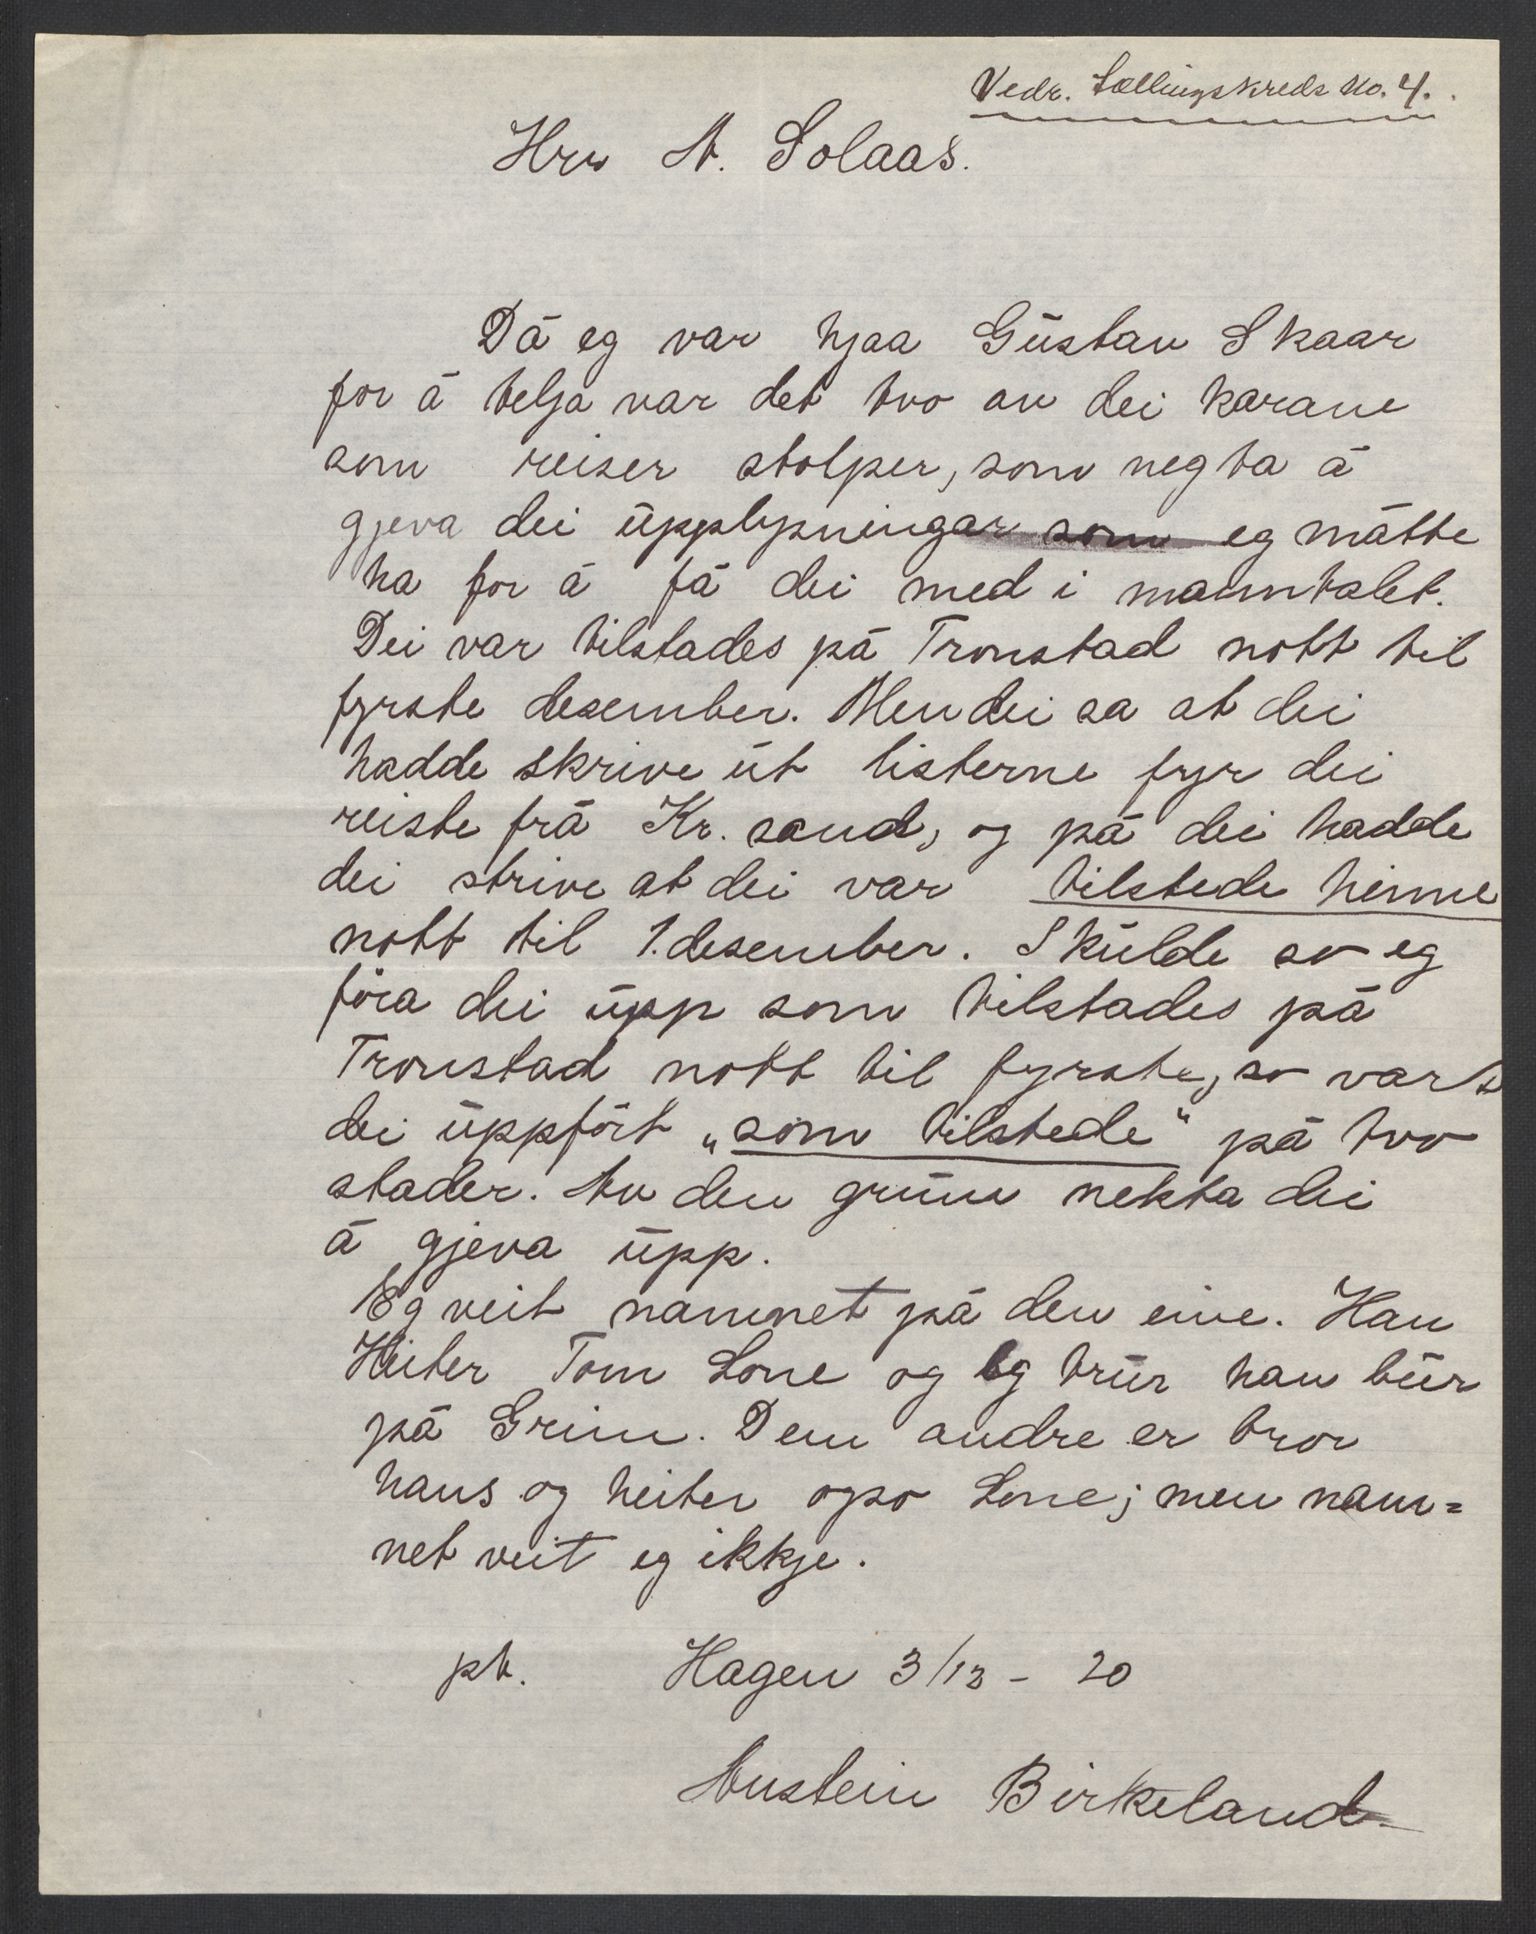 Vedr. Tællingskreds No. 4.
Hrr A. Solaas.
Då eg var hjaa Gustav Skaar
for å telja var det tvo av dei karane
som reiser stolper, som negta å
gjeva dei upplysningar som eg måtte
ha for å få dei med i manntalet.
Dei var tilstades på Tronstad nott til
fyrste desember. Men dei sa at dei
hadde skrive ut listerne fyr dei
reiste frå Kr. sand, og på dei hadde
dei skrive at dei var tilstede heime
nott til 1. desember. Skulde so eg
föra dei upp som tilstades på
Tronstad nott til fyrste, so vart
dei uppfört „som tilstede“ på tvo
stader. Av den grunn nekta dei
å gjeva upp.
Eg veit namnet på den eine. Han
Heiter Tom Lone og eg trur han bur
på Grim. Den andre er bror
hans og heiter ogso Lone; men nam=
net veit eg ikkje.
pt. Hagen 3/12 - 20
Austein Birkeland.